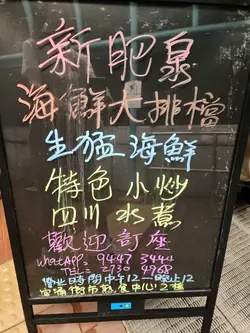 新肥泉
海鮮大排檔
生猛海鮮
特色小炒
四川水煮
歡迎訂座
WhatsAPP: 9447 3444
TEL: 2730 4968
營业時間中午12—晚上12
官涌街市熟食中心2樓